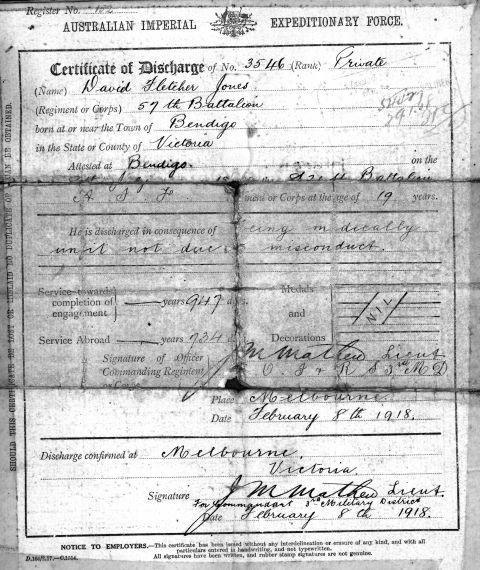 Register No.
AUSTRALIAN IMPERIAL EXPEDITIONARY FORCE.
Certificate of Discharge of No. 3546 (Rank) Private
(Name) David Fletcher Jones
(Regiment or Corps) 57th Battalion
born at or near the Town of Bendigo
in the State or County of Victoria
Attested at Bendigo. on the
Battalion
A I F Corps at the age of 19 years.
He is discharged in consequence of being medically
unfit not due to misconduct.
Service towards completion of engagement — years 947 days.
Service Abroad — years 734 days
Medals and Decorations NIL
Signature of Officer Commanding Regiment or Corps J M Mathew Lieut
3rd M D
Place Melbourne
Date February 8th 1918.
Discharge confirmed at Melbourne.
Victoria
Signature J M Mathew Lieut.
For Commandant 3rd Military District
Date February 8th 1918.
NOTICE TO EMPLOYERS.—This certificate has been issued without any interdelineation or erasure of any kind, and with all
particulars entered in handwriting, and not typewritten.
All signatures have been written, and rubber stamp signatures are not genuine.
SHOULD THIS CERTIFICATE BE LOST OR MISLAID NO DUPLICATE OF IT CAN BE OBTAINED.